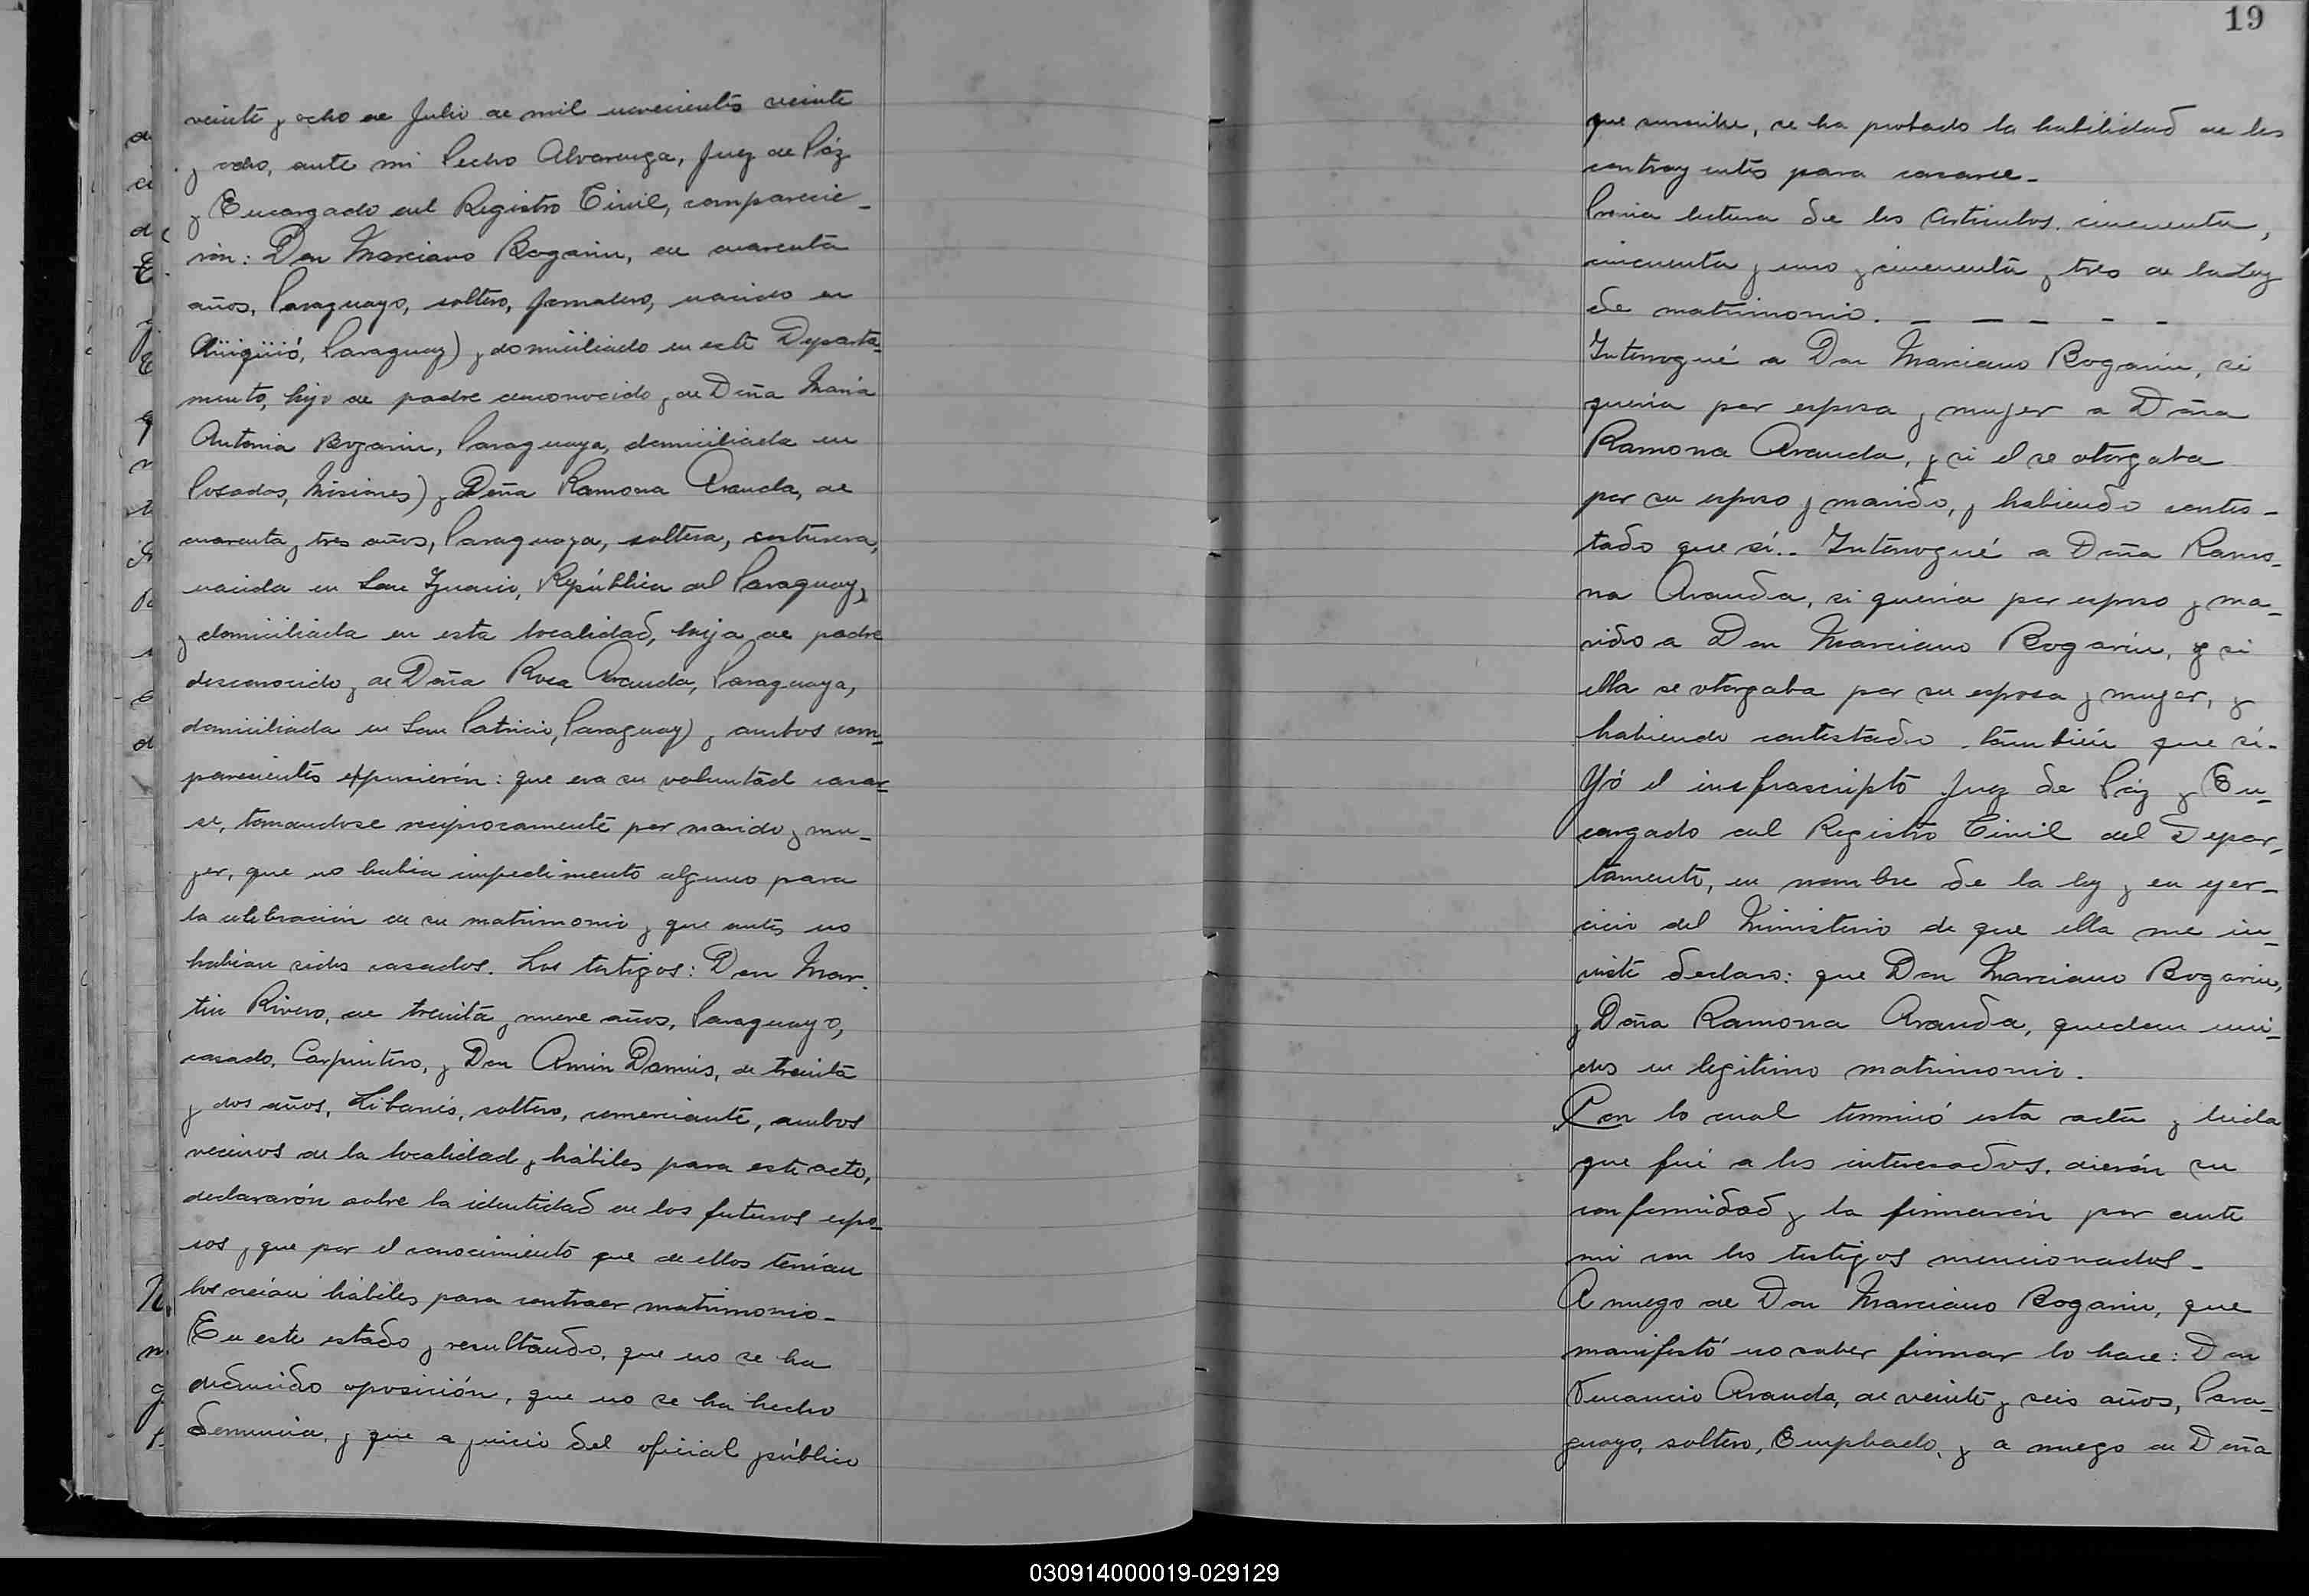 veinte y ocho de Julio de mil novecientos veinte
y ocho, ante mi Pedro Alvarenga, Juez de Páz
y Encargado del Registro Civil, comparecie-
rón: Don Marciano Bogarin, de cuarenta
años, Paraguayo, soltero, jornalero, nacido en
Paraguay) y domiciliado en este Departa-
mento, hijo de padre desconocido y de Doña Maria
Antonia Bogarin, Paraguaya, domiciliada en
Posadas, Misiones) y Doña Ramona Aranda, de
cuarenta y tres años, Paraguaya, soltera, costurera,
nacida en San Ignacio, República del Paraguay)
y domiciliada en esta localidad, hija de padre
desconocido y de Doña Rosa Aranda, Paraguaya,
domiciliada en San Patricio, Paraguay) y ambos com-
parecientes expusierón: que era su voluntad casar-
se, tomandose reciprocamente por marido y mu-
jer, que no habia impedimento alguno para
la celebración de su matrimonio y que antes no
habian sidos casados. Los testigos: Don Mar-
tin Rivero, de treinta y nueve años, Paraguayo,
casado, Carpintero, y Don Amin Damis, de treinta
y dos años, Libanés, soltero, comerciante, ambos
vecinos de la localidad y hábiles para este acto,
declararón sobre la identidad de los futuros espo-
sos y que por el conocimiento que de ellos tenían
los creían hábiles para contraer matrimonio-
En este estado y resultando, que no se ha
deducido oposición, que no se ha hecho
denuncia, y que a juicio del oficial público
19
que suscribe, se ha probado la habilidad de los
contrayentes para casarse-
Previa lectura de los Articulos. cincuenta,
cincuenta y uno y cincuenta y tres de la Ley
de matrimonio. - - - - -
Interrogué a Don Marciano Bogarin, si
queria por esposa y mujer a Doña
Ramona Aranda, y si el se otorgaba
por su esposo y marido, y habiendo contes-
tado que sí.- Interrogué a Doña Ramo-
na Aranda, si queria por esposo y ma-
rido a Don Marciano Bogarin, y si
ella se otorgaba por su esposa y mujer, y
habiendo contestado también que sí-
Yó el insfrascripto Juez de Páz y En-
cargado del Registro Civil del Depar-
tamento, en nombre de la ley y en ejer-
cicio del Ministerio de que ella me in-
viste declaro: que Don Marciano Bogarin,
y Doña Ramona Aranda, quedan uni-
dos en legitimo matrimonio.
Con lo cual terminó esta acta y leida
que fué a los interesados. dierón su
conformidad y la firmarón por ante
mi con los testigos mencionados-
A ruego de Don Marciano Bogarin, que
manifestó no saber firmar lo hace: Don
Venancio Aranda, de veinte y seis años, Para-
guayo, soltero, Empleado, y a ruego de Doña
030914000019-029129